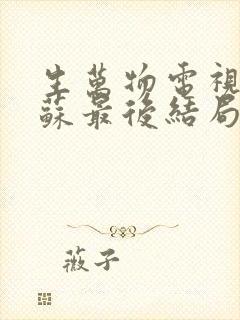 生萬物電視
蘇最後結局
薇子